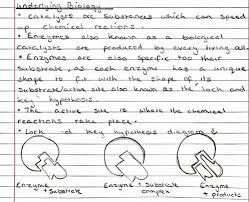 Underlying Biology
• Catalysts are substances which can speed
up chemical reactions.
• Enzymes also known as a biological
catalysts are produced by every living cell.
• Enzymes are also specific too their
substrate as each enzyme has a unique
shape to fit with the shape of its
substrate/active site also known as the lock and
key hypothesis.
• The active site is where the chemical
reactions take place.
• Lock and key hypothesis diagram
Enzyme + Substrate
Enzyme + Substrate complex
Enzyme + products